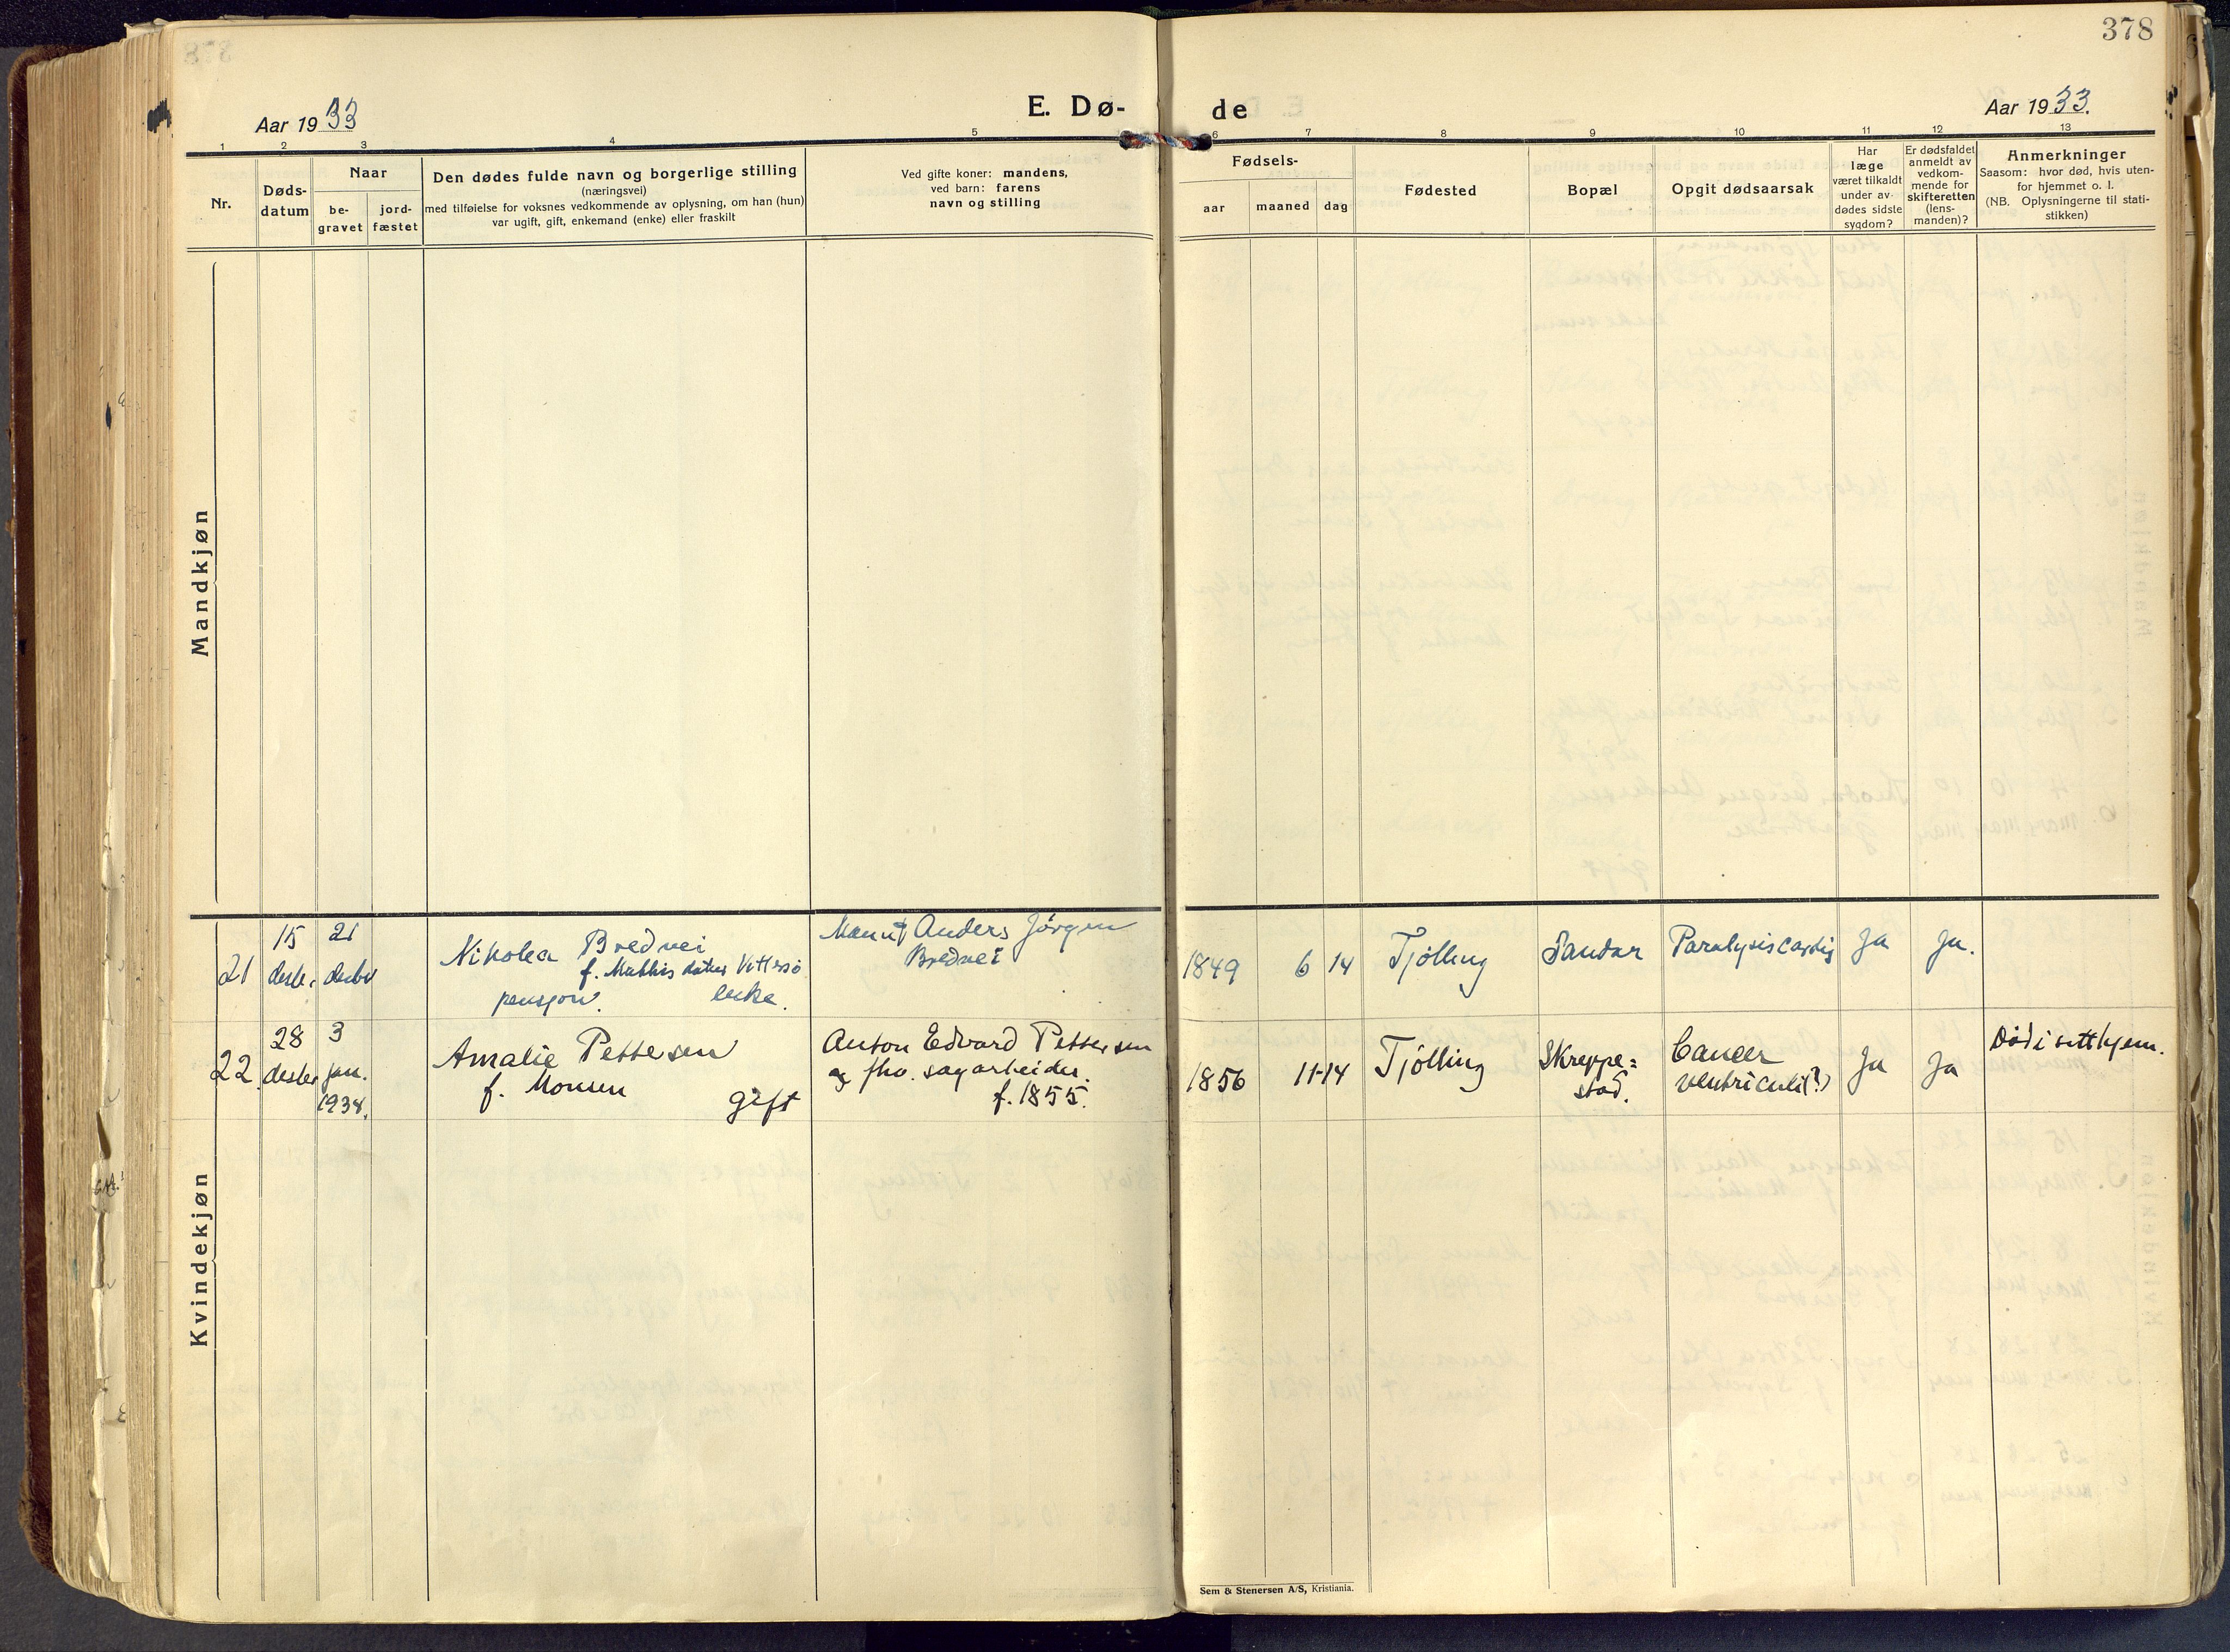 378
Aar 1933
E. Dø-
de
Aar 1933.
1 2 3 4 5 6 7 8 9 10 11 12 13
Nr.
Døds-
datum
Naar
be-
gravet
jord-
fæstet
Den dødes fulde navn og borgerlige stilling
(næringsvei)
med tilføielse for voksnes vedkommende av oplysning, om han (hun)
var ugift, gift, enkemand (enke) eller fraskilt
Ved gifte koner: mandens,
ved barn: farens
navn og stilling
Fødsels-
aar maaned dag
Fødested
Bopæl
Opgit dødsaarsak
Har
læge
været tilkaldt
under av-
dødes sidste
sygdom?
Er dødsfaldet
anmeldt av
vedkom-
mende for
skifteretten
(lens-
manden)?
Anmerkninger
Saasom: hvor død, hvis uten-
for hjemmet o. l.
(NB. Oplysningerne til stati-
stikken)
Mandkjøn
Kvindekjøn
21
15
desbr.
21
desbr
Nikolea Bredvei
f. Mathisdatter Vittersø
pensjon. enke.
Mann † Anders Jörgen
Bredvei
1849 6 14
Tjölling
Sandar
Paralysis cordis
Ja
Ja.
22.
28
desbr
3
jan.
1934.
Amalie Pettersen
f. Monsen
gift
Anton Edvard Pettersen
fhv. sagarbeider.
f. 1855.
1856 11 14
Tjölling
Skreppe=
stad.
Cancer
ventriculi(?)
Ja
Ja
Död i sitt hjem.
Sem & Stenersen A/S, Kristiania.